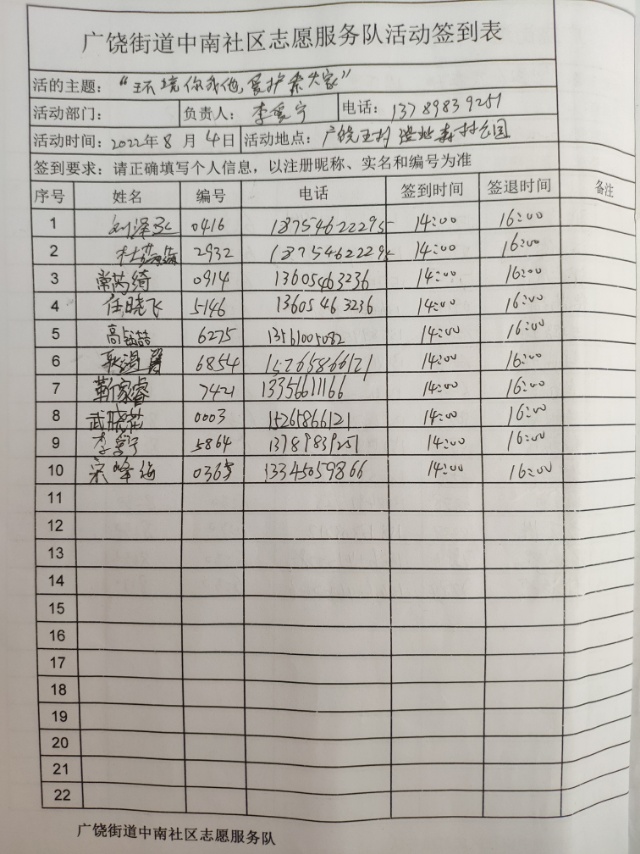 广饶街道中南社区志愿服务队活动签到表
活的主题：“环境你我他，爱护靠大家”
活动部门： 负责人：李爱宁 电话：13789839251
活动时间：2022年8月4日 活动地点：广饶 森林公园
签到要求：请正确填写个人信息，以注册昵称、实名和编号为准
序号 姓名 编号 电话 签到时间 签退时间 备注
1 刘泽 0416 18754622295 14:00 16:00
2 杜 2932 18754622295 14:00 16:00
3 常芮绮 0914 13605463236 14:00 16:00
4 任晓飞 5146 13605463236 14:00 16:00
5 高 6275 13561005082 14:00 16:00
6 6854 15265866121 14:00 16:00
7 靳家睿 7421 13356611166 14:00 16:00
8 武晓 0003 15265866121 14:00 16:00
9 李爱宁 5864 13789839251 14:00 16:00
10 宋峰 0365 13345059866 14:00 16:00
11
12
13
14
15
16
17
18
19
20
21
22
广饶街道中南社区志愿服务队